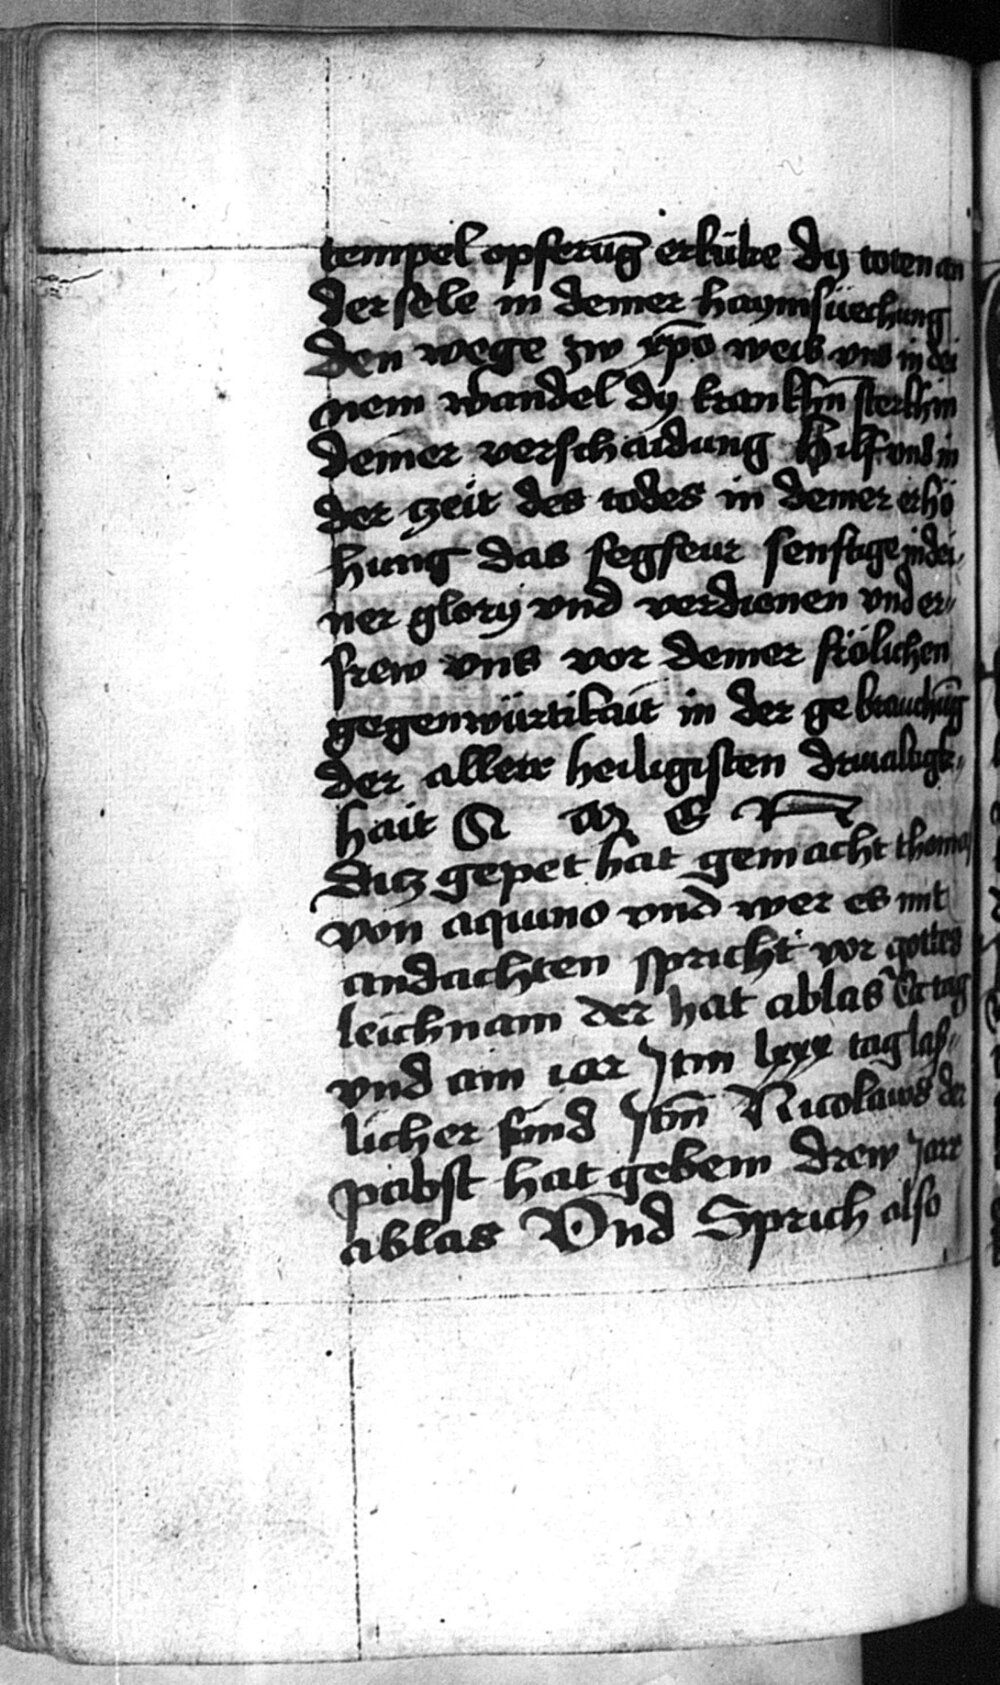 tempel opferūg erküke dÿ toten an
der sele in deiner haymsüechung
den wege zw xp̄o weis vns in dei
nem wandel dÿ krankhn̄ sterkh in
deiner verschaidung hilf vns in
der zeit des todes in deiner erhö
hung das fegfeur senftige in dei-
ner glory vnd verdienen vnd er-
frew vns vor deiner frölichen
gegenwürtikait in der gebrauchūg
der allerr heiligisten driualtigk-
hait A M E N
Ditz gepet hat gemacht thomas
von aquino vnd wer es mit
andachten spricht vor gottes
leichnam der hat ablas tag
vnd ain iar Itm lxxx tag laß-
licher sund Itm̄ Nicolaws der
pabst hat gebem drew Jarr
ablas Vnd Sprich also